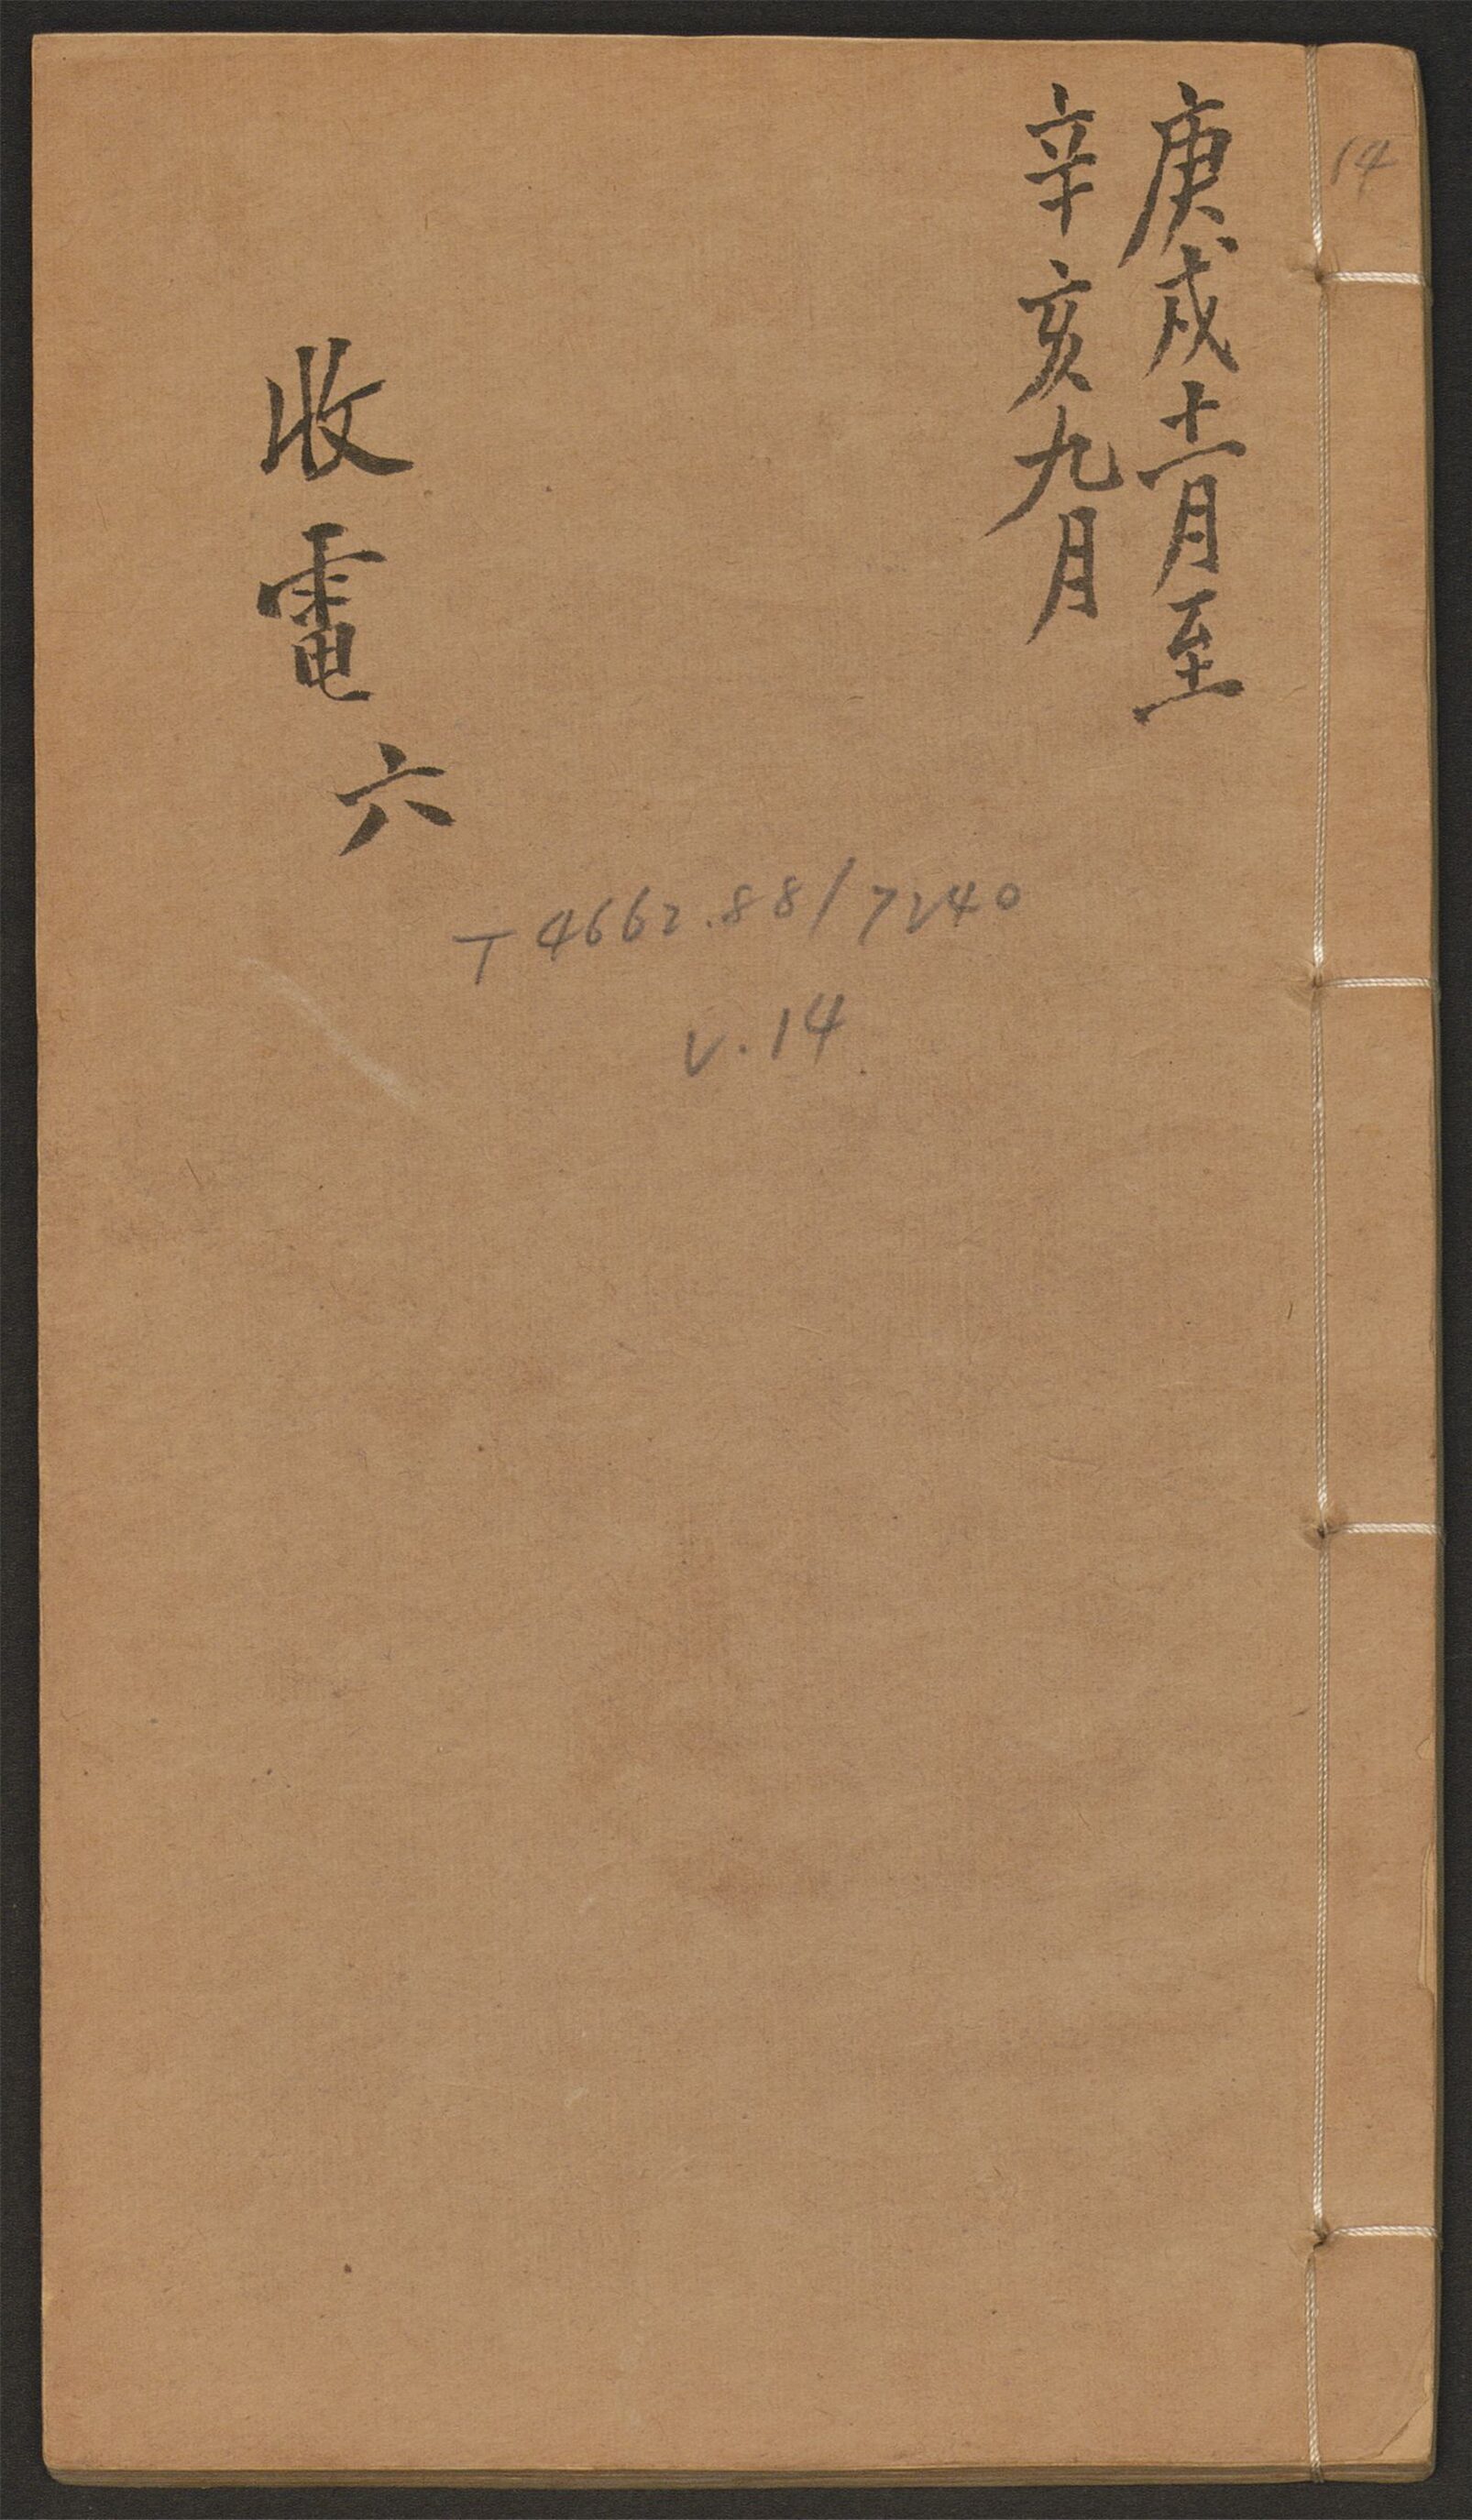 14
庚戌十二月至
辛亥九月
收電 六
T4662.88/7240
V.14